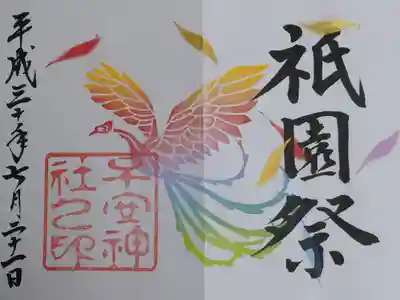 祇園祭
平安神
社之印
平成三十年七月二十一日